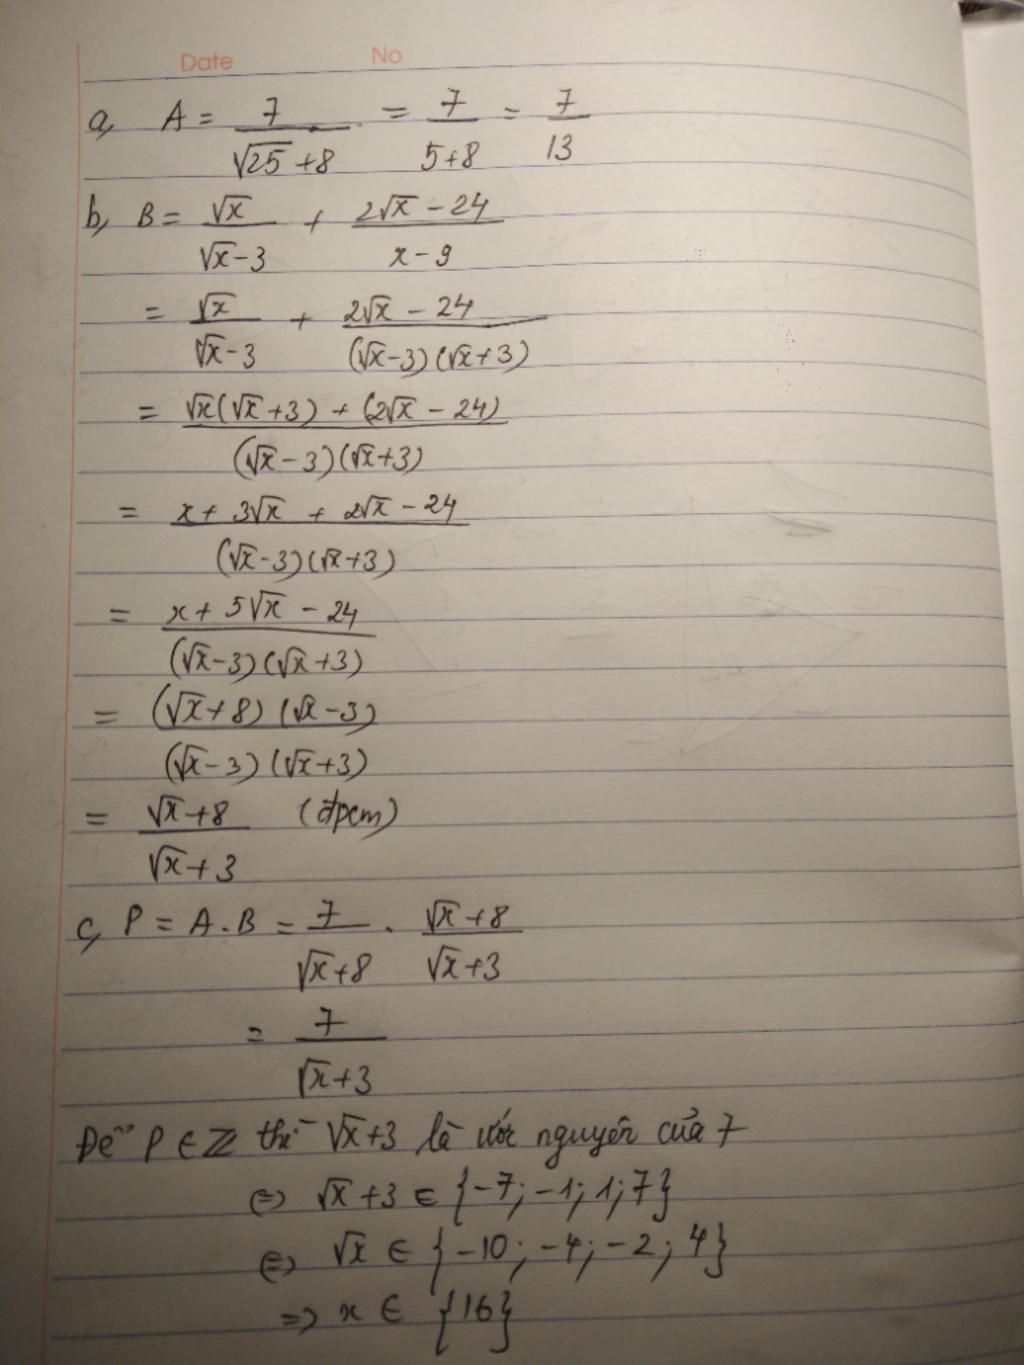 Date No
a, A = 7/(√25 + 8) = 7/(5+8) = 7/13
b, B = √x/(√x - 3) + (2√x - 24)/(x - 9)
= √x/(√x - 3) + (2√x - 24)/((√x - 3)(√x + 3))
= (√x(√x + 3) + (2√x - 24))/((√x - 3)(√x + 3))
= (x + 3√x + 2√x - 24)/((√x - 3)(√x + 3))
= (x + 5√x - 24)/((√x - 3)(√x + 3))
= ((√x + 8)(√x - 3))/((√x - 3)(√x + 3))
= (√x + 8)/(√x + 3) (đpcm)
c, P = A . B = 7/(√x + 8) . (√x + 8)/(√x + 3)
= 7/(√x + 3)
Để P ∈ ℤ thì √x + 3 là ước nguyên của 7
⇔ √x + 3 ∈ {-7; -1; 1; 7}
⇔ √x ∈ {-10; -4; -2; 4}
⇒ x ∈ {16}